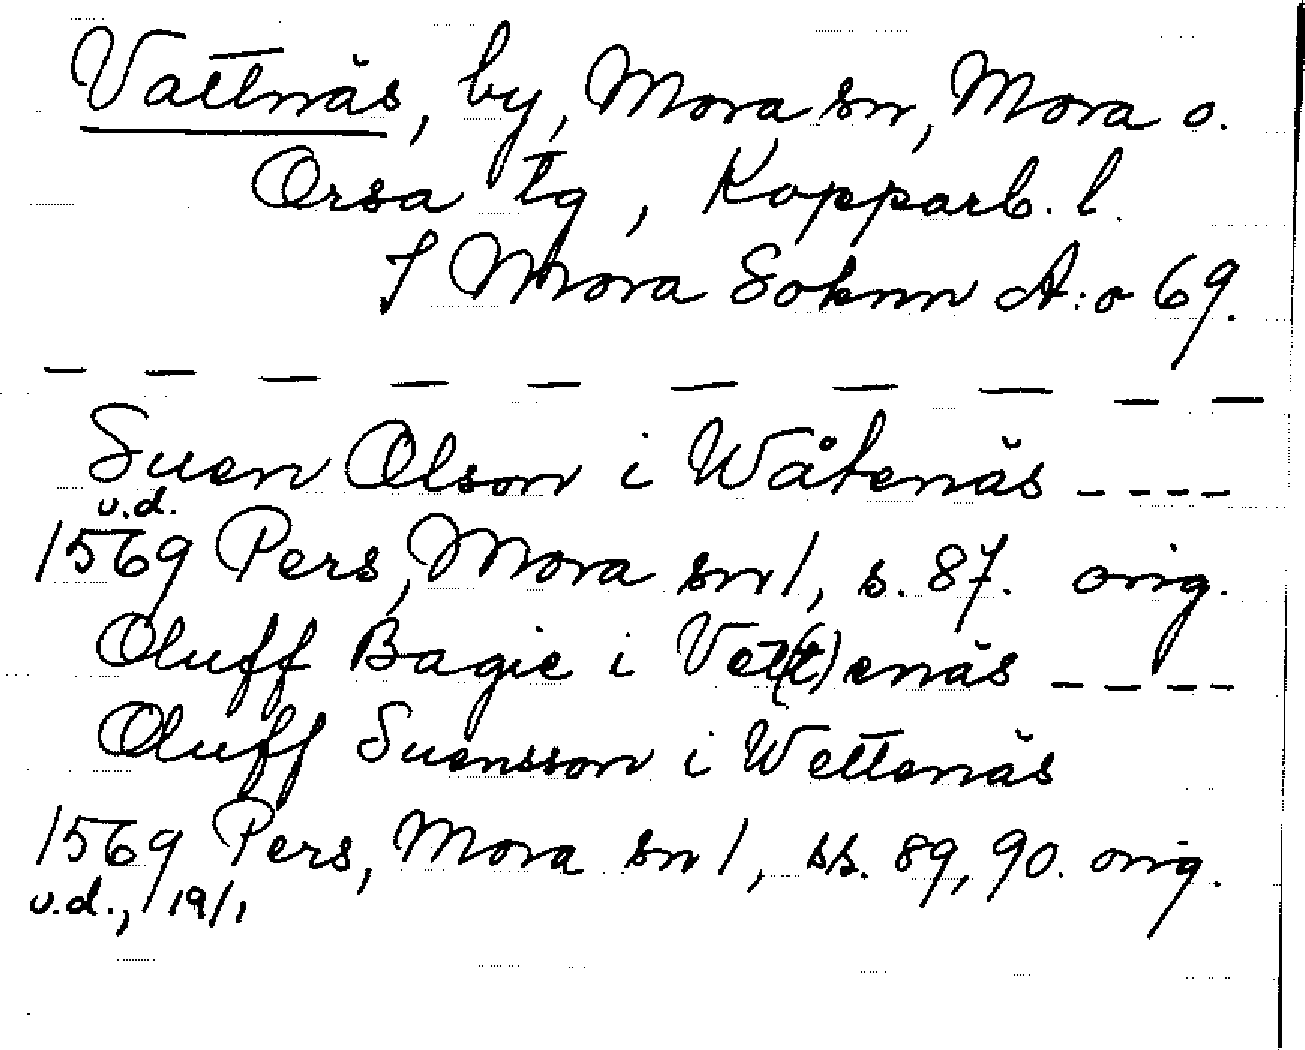 Vattnäs, by, Mora sn, Mora o.
Orsa tg, Kopparb. l.
I Mora Soknn A:o 69.
Suen Olson i Wåtenäs ----
u.d.
1569 Pers, Mora sn 1, s. 87. orig.
Oluff Bagie i Vet(t)enäs ----
Oluff Suensson i Wettenäs
1569 Pers, Mora sn 1, ss. 89, 90. orig.
u.d., 19/1